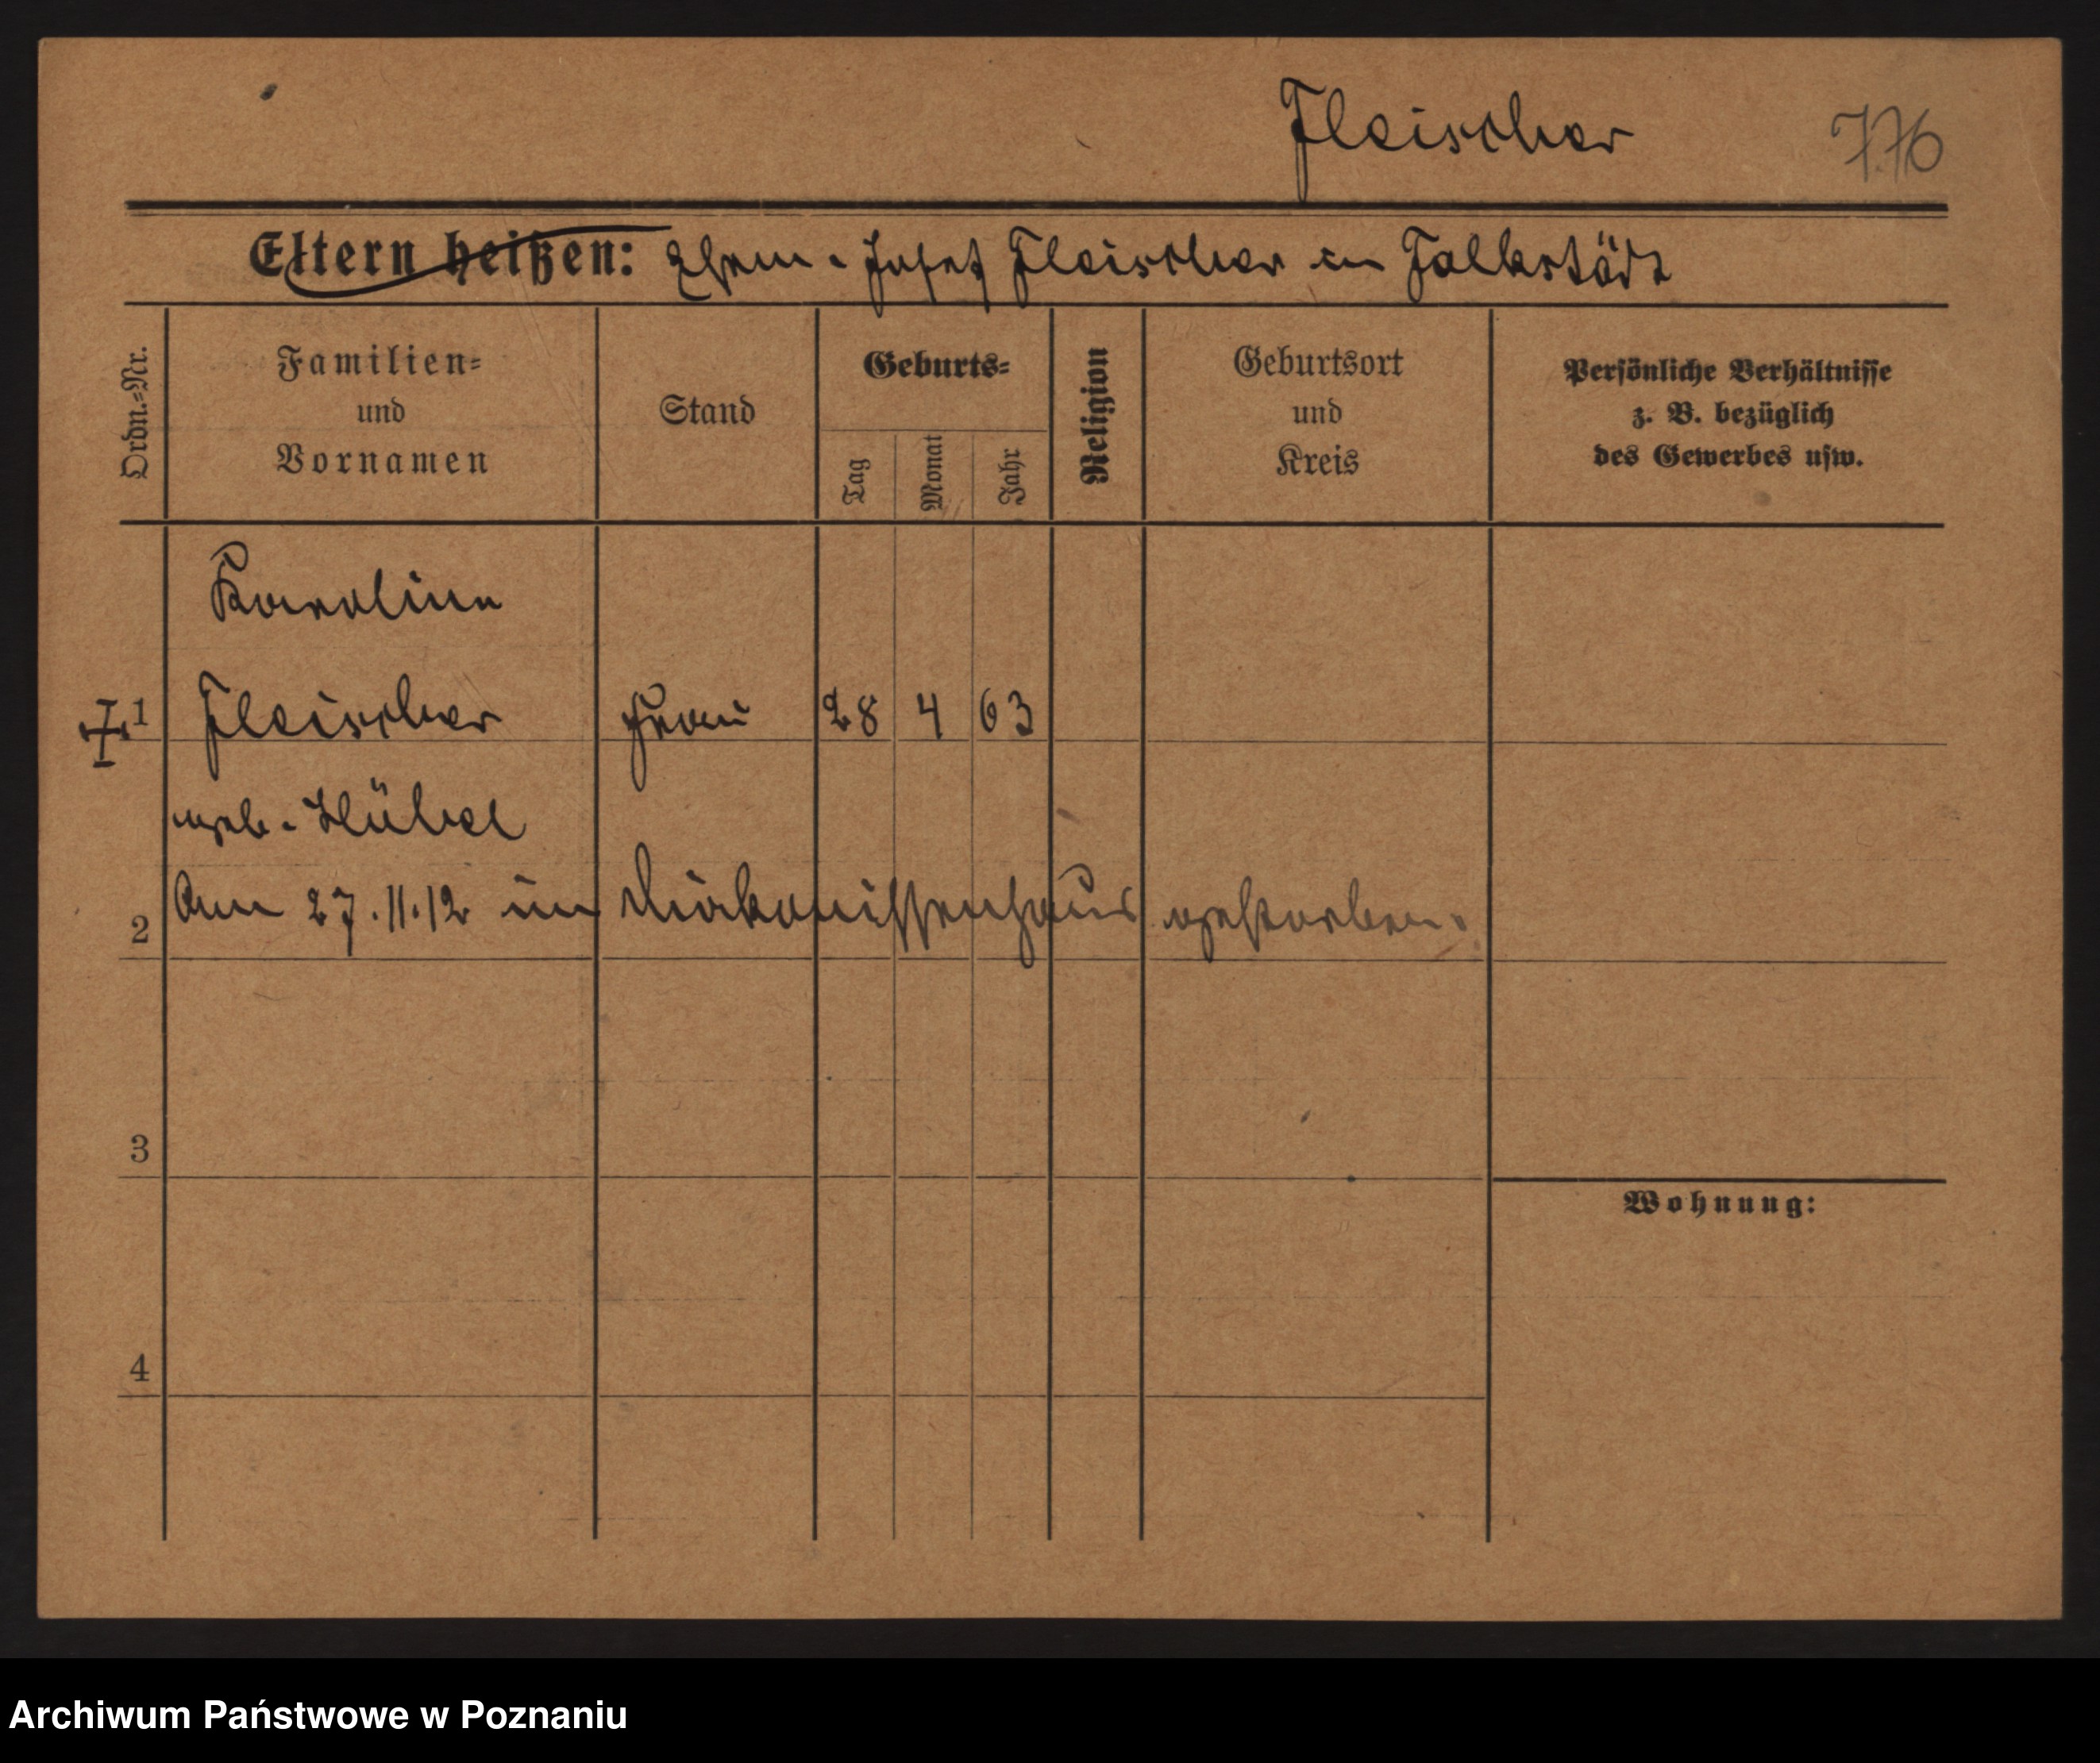 Fleischer 776
Eltern heißen: Ehem. Josef Fleischer in Falkstädt
Ordn.=Nr.
Familien=
und
Vornamen
Stand
Geburts=
Tag
Monat
Jahr
Religion
Geburtsort
und
Kreis
Persönliche Verhältnisse
z. B. bezüglich
des Gewerbes usw.
Karoline
1 Fleischer Frau 28 4 63
geb. Hübel
2 Am 27.11.12 im Diakonissenhaus gestorben.
3
Wohnung:
4
Archiwum Państwowe w Poznaniu